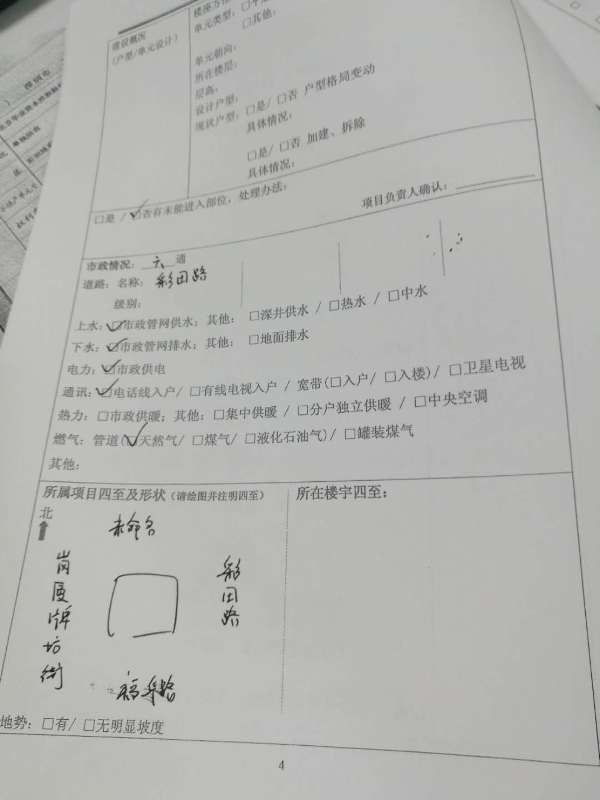 建设概况
(户型/单元设计)
单元类型:
□其他:
单元朝向:
所在楼层:
层高:
设计户型:
现状户型: □是/ □否 户型格局变动
具体情况:
□是/ □否 加建、拆除
具体情况:
□是 / ☑否有未能进入部位, 处理办法:
项目负责人确认:
市政情况: 六 通
道路: 名称: 彩田路
级别:
上水: ☑市政管网供水; 其他: □深井供水 / □热水 / □中水
下水: ☑市政管网排水; 其他: □地面排水
电力: ☑市政供电
通讯: ☑电话线入户/ □有线电视入户 / 宽带(□入户/ □入楼)/ □卫星电视
热力: □市政供暖; 其他: □集中供暖 / □分户独立供暖 / □中央空调
燃气: 管道(☑天然气/ □煤气/ □液化石油气)/ □罐装煤气
其他:
所属项目四至及形状 (请绘图并注明四至)
所在楼宇四至:
北
未命名
岗厦牌坊街
彩田路
福华路
地势: □有/ □无明显坡度
4